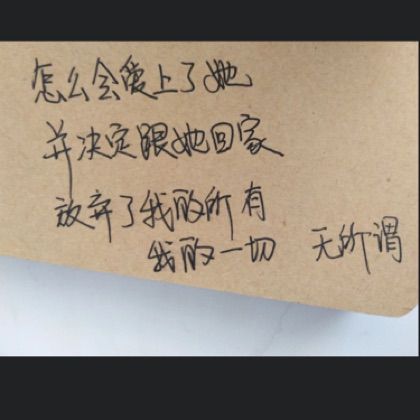 怎么会爱上了她
并决定跟她回家
放弃了我的所有
我的一切 无所谓